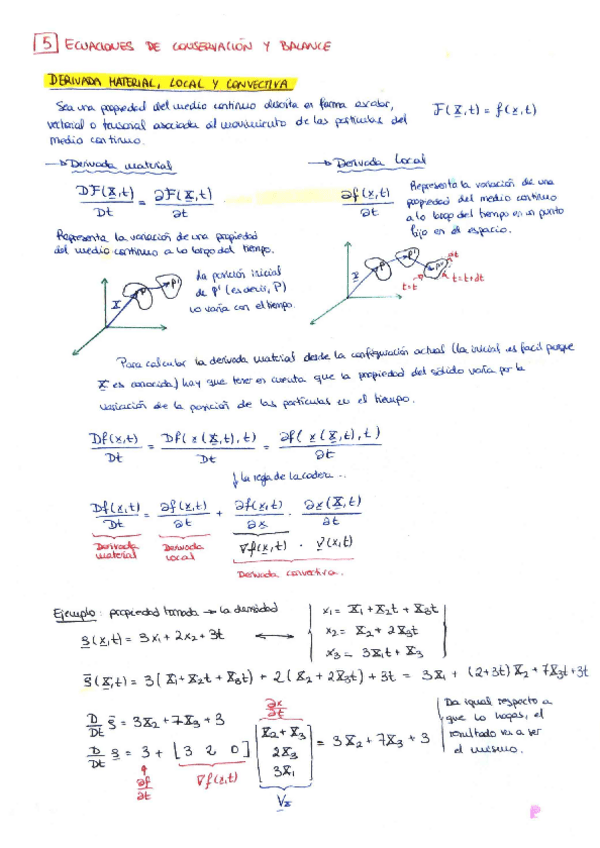 5 ECUACIONES DE CONSERVACIÓN Y BALANCE
DERIVADA MATERIAL, LOCAL Y CONVECTIVA
Sea una propiedad del medio continuo descrita en forma escalar,
vectorial o tensorial asociada al movimiento de las partículas del
medio continuo.
F(X,t) = f(x,t)
→ Derivada material
DF(X,t)/Dt = ∂F(X,t)/∂t
Representa la variación de una propiedad
del medio continuo a lo largo del tiempo.
X P P'
La posición inicial
de P' (es decir, P)
no varía con el tiempo.
→ Derivada Local
∂f(x,t)/∂t
Representa la variación de una
propiedad del medio continuo
a lo largo del tiempo en un punto
fijo en el espacio.
t=t t=t+dt
Para calcular la derivada material desde la configuración actual (la inicial es facil porque
X es conocida) hay que tener en cuenta que la propiedad del sólido varía por la
variación de la posición de las partículas en el tiempo.
Df(x,t)/Dt = Df(x(X,t),t)/Dt = ∂f(x(X,t),t)/∂t
↓ la regla de la cadena...
Df(x,t)/Dt = ∂f(x,t)/∂t + ∂f(x,t)/∂x · ∂x(X,t)/∂t
Derivada material
Derivada local
∇f(x,t) · v(x,t)
Derivada convectiva.
Ejemplo: propiedad tomada → la densidad
ρ(x,t) = 3x1 + 2x2 + 3t ↔
x1 = X1 + X2t + X3t
x2 = X2 + 2X3t
x3 = 3X1t + X3
ρ̄(X,t) = 3(X1+X2t+X3t) + 2(X2+2X3t) + 3t = 3X1 + (2+3t)X2 + 7X3t + 3t
D/Dt ρ̄ = 3X2 + 7X3 + 3
∂x/∂t
D/Dt ρ = 3 + [3 2 0] [X2+X3 2X3 3X1] = 3X2 + 7X3 + 3
∂f/∂t
∇f(x,t)
Vx
Da igual respecto a
que lo hagas, el
resultado va a ser
el mismo.